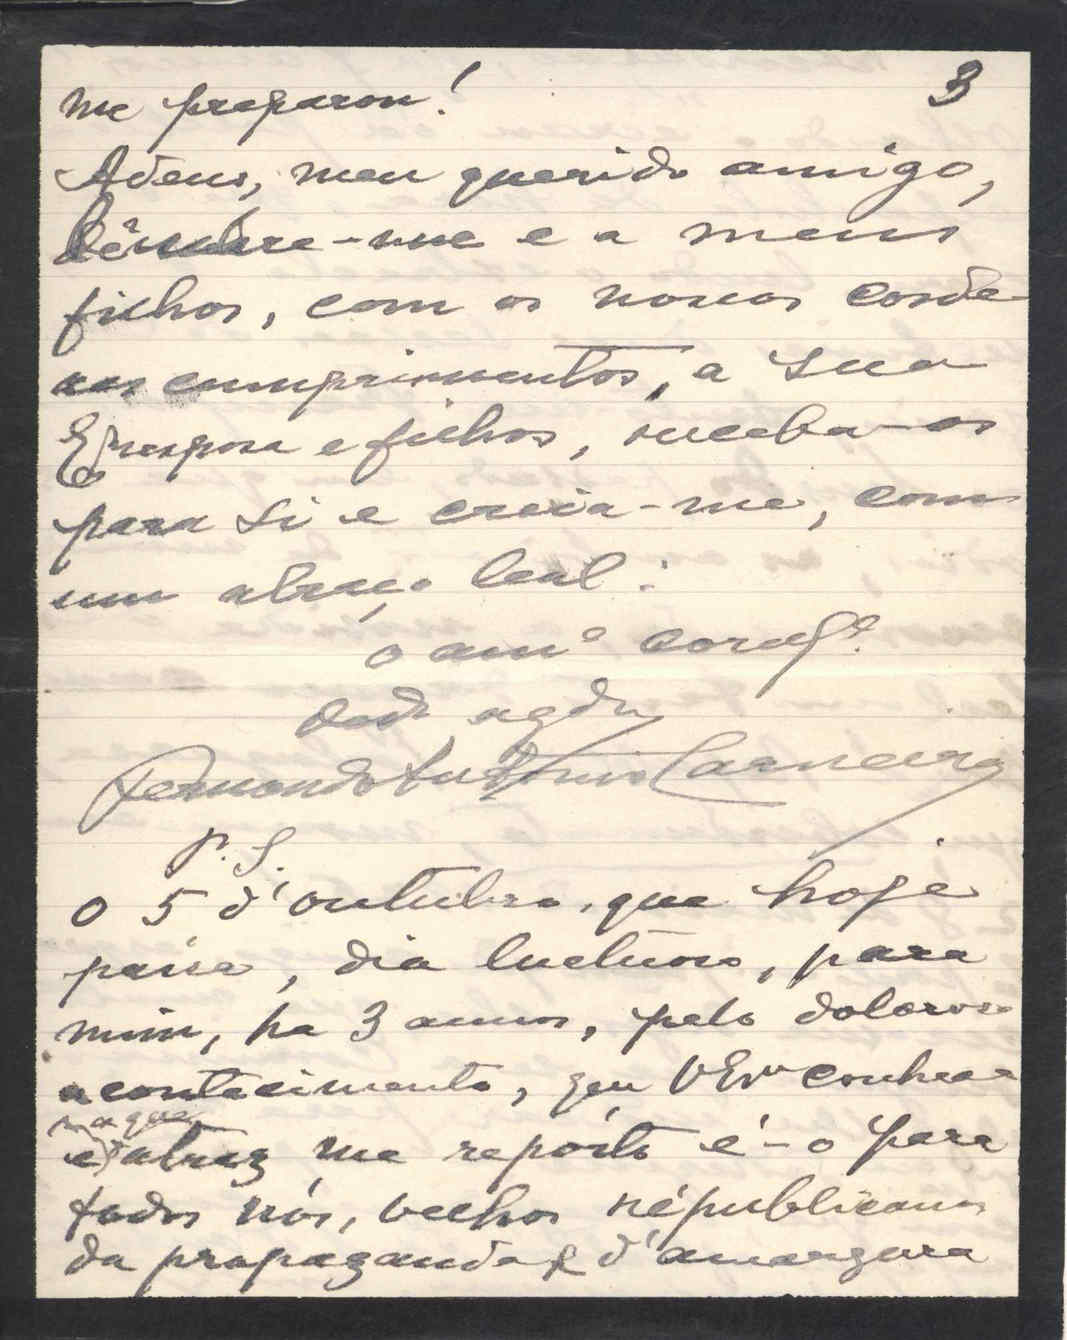 3
me preparou!
Adeus, meu querido amigo,
lêmbre-me e a meus
filhos, com os nossos cordea
es cumprimentos, a sua
Exma esposa e filhos, receba-os
para si e creia-me, com
um abraço leal:
o amº
Fernando Antonio Carneiro
P.S.
O 5 d'outubro, que hoje
passa, dia luctuoso, para
mim, ha 3 annos, pelo doloroso
acontecimento, que V Exª conhece
e a que
atraz me reporto é-o para
todos nós, velhos républicanos
da propaganda, d'amargura